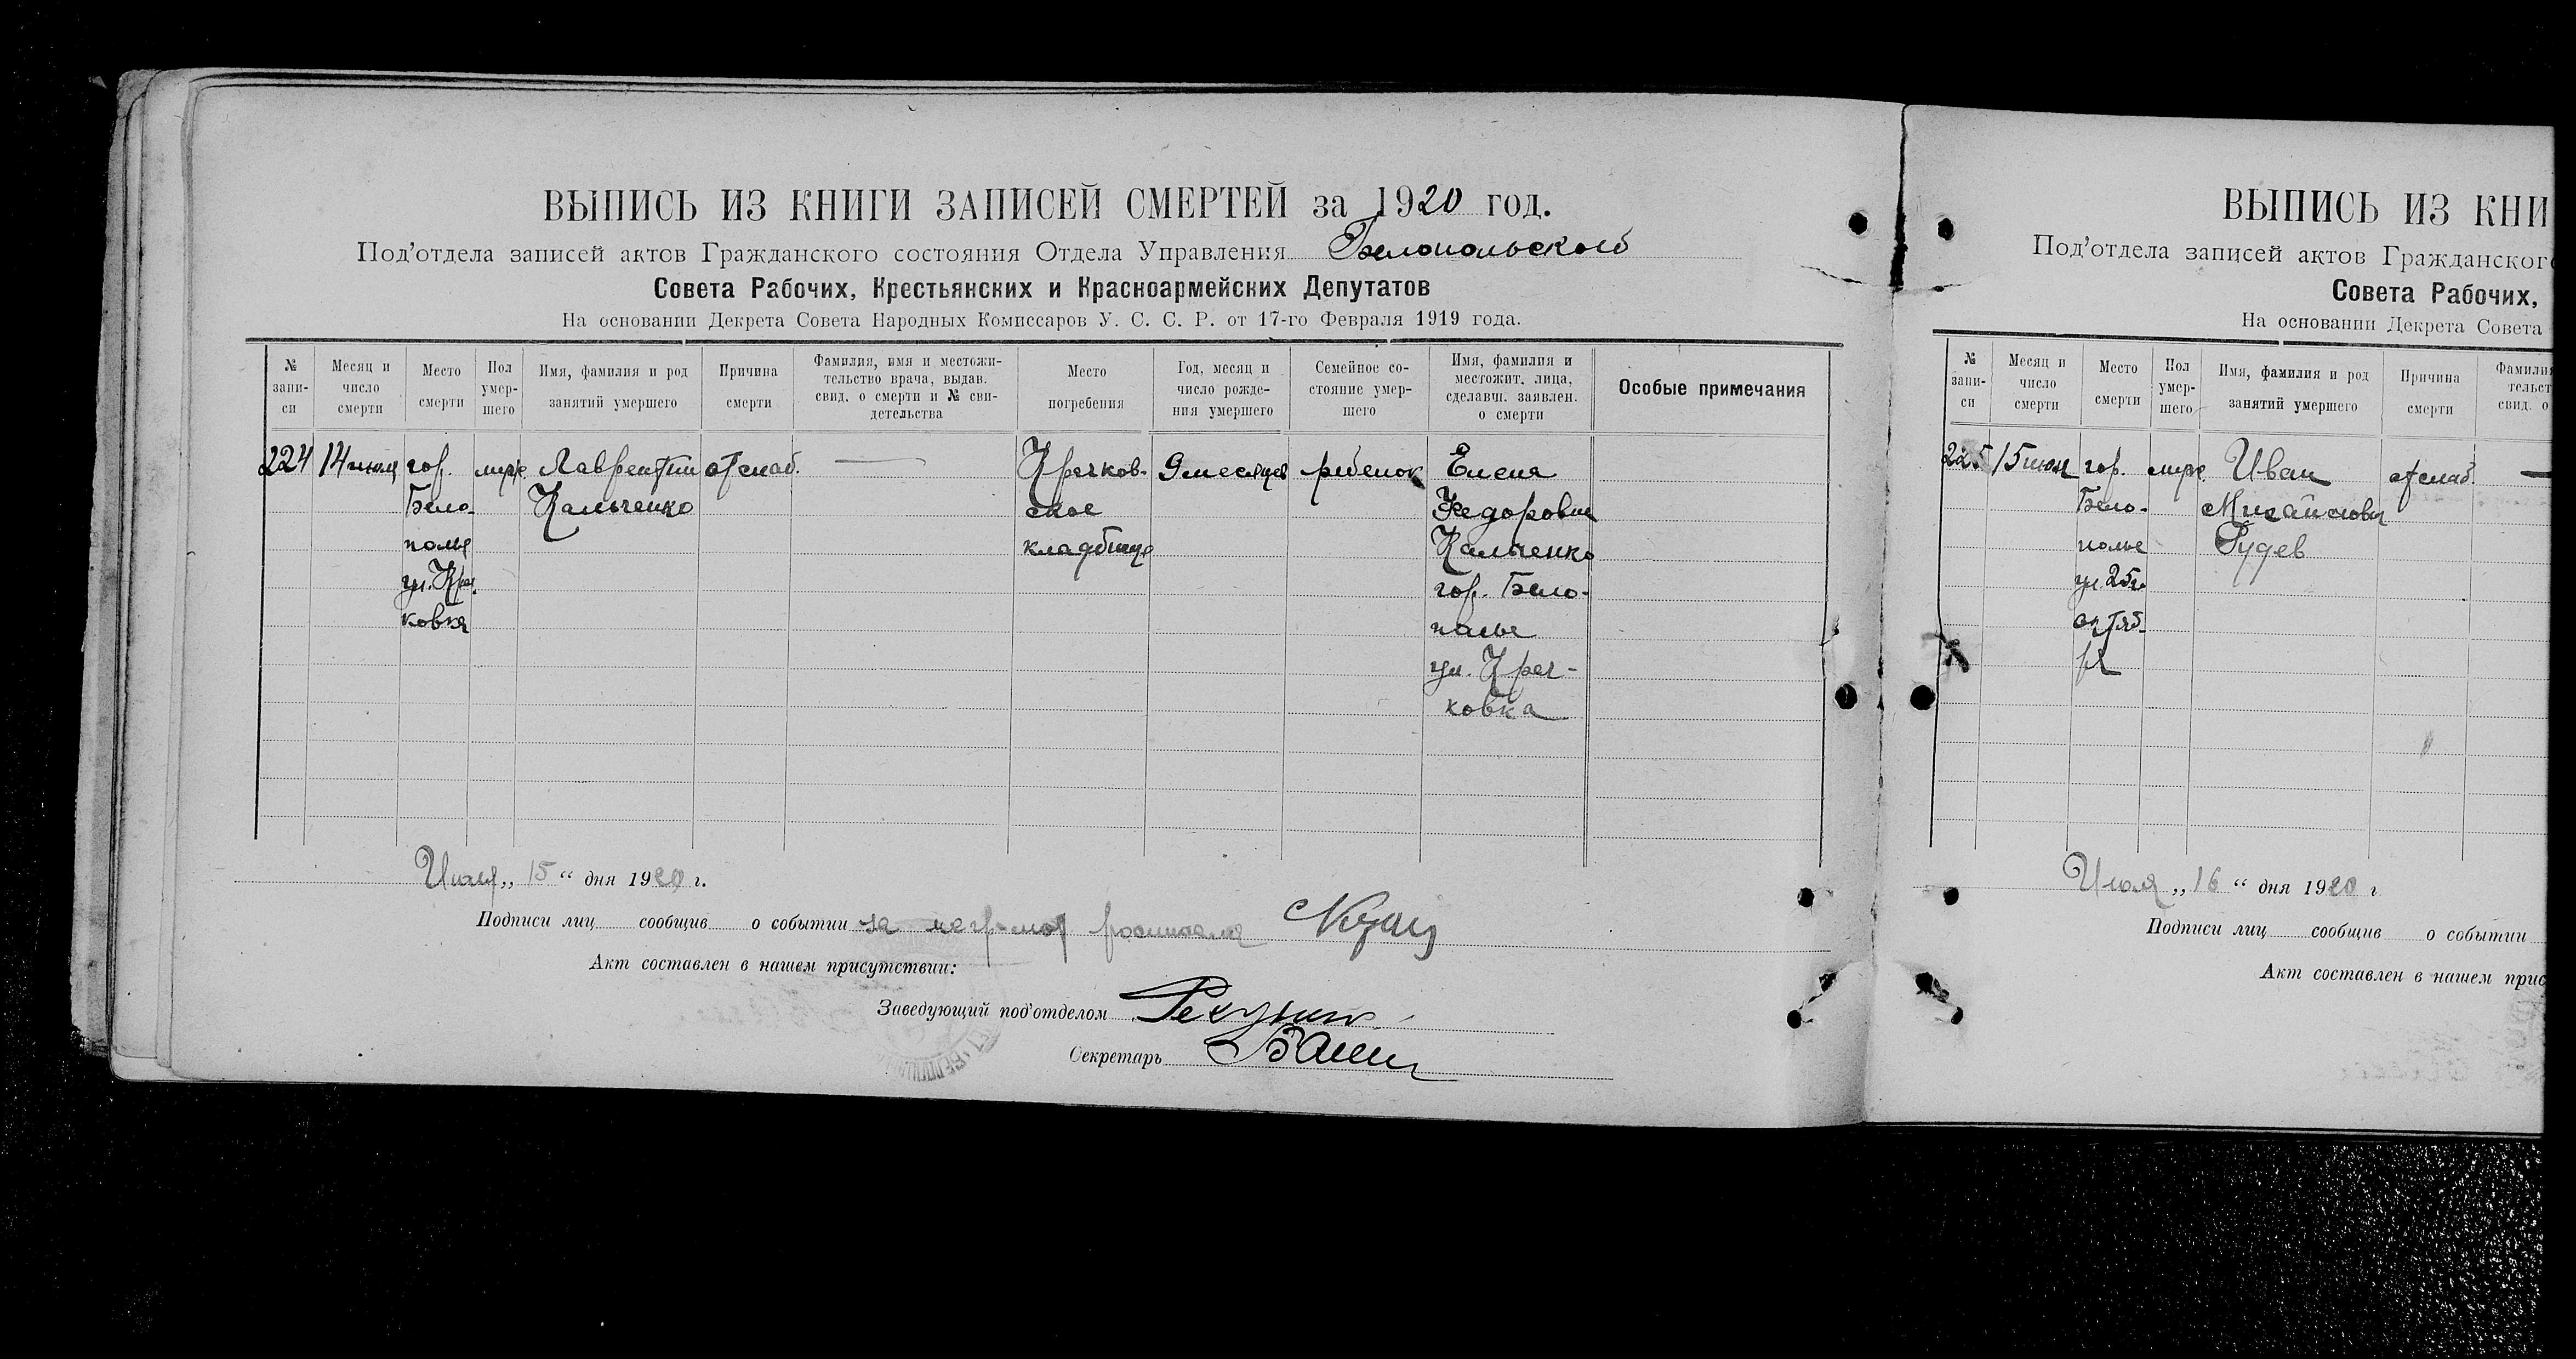 ВЫПИСЬ ИЗ КНИГИ ЗАПИСЕЙ СМЕРТЕЙ за 1920 год.
Под'отдела записей актов Гражданского состояния Отдела Управления Белопольского
Совета Рабочих, Крестьянских и Красноармейских Депутатов
На основании Декрета Совета Народных Комиссаров У. С. С. Р. от 17-го Февраля 1919 года.
№ запи-
си
Месяц и
число
смерти
Место
смерти
Пол
умер-
шего
Имя, фамилия и род
занятий умершего
Причина
смерти
Фамилия, имя и местожи-
тельство врача, выдав.
свид. о смерти и № сви-
детельства
Место
погребения
Год, месяц и
число рожде-
ния умершего
Семейное со-
стояние умер-
шего
Имя, фамилия и
местожит. лица,
сделавш. заявлен.
о смерти
Особые примечания
224
14 июля
гор.
Бело-
полье
ул. Креч
ковка
муж.
Лаврентий
Кальченко
от слаб.
Кречков-
ское
кладбище
9 месяцев
ребенок
Елена
Федоровна
Кальченко
гор. Бело-
полье
ул. Креч-
ковка
Июля „ 15 “ дня 1920 г.
Подписи лиц сообщив о событии за неграмот
Акт составлен в нашем присутствии:
Заведующий под'отделом
Секретарь
ВЫПИСЬ ИЗ КНИ
Под'отдела записей актов Гражданског
Совета Рабочих,
На основании Декрета Совета
№
запи-
си
Месяц и
число
смерти
Место
смерти
Пол
умер-
шего
Имя, фамилия и род
занятий умершего
Причина
смерти
Фамилия
тельст
свид. о
225
15 июля
гор.
Бело-
полье
ул. 25го
октяб-
ря
муж.
Иван
Михайлович
Гудев
от слаб.
Июля „ 16 “ дня 1920 г
Подписи лиц сообщив о событии
Акт составлен в нашем прис